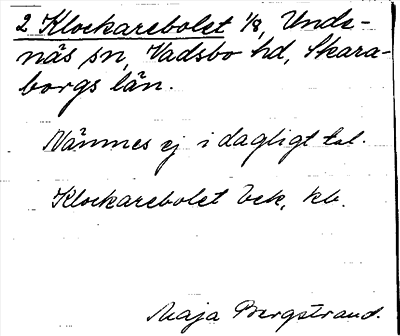 2 Klockarebolet 1/8, Unde-
näs sn, Vadsbo hd, Skara-
borgs län.
Nämnes ej i dagligt tal.
Klockarebolet Eek, kb.
Maja Bergstrand.